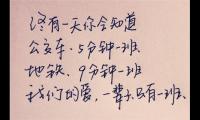 终有一天你会知道
公交车，5分钟一班
地铁，9分钟一班
我们的爱，一辈子只有一班、